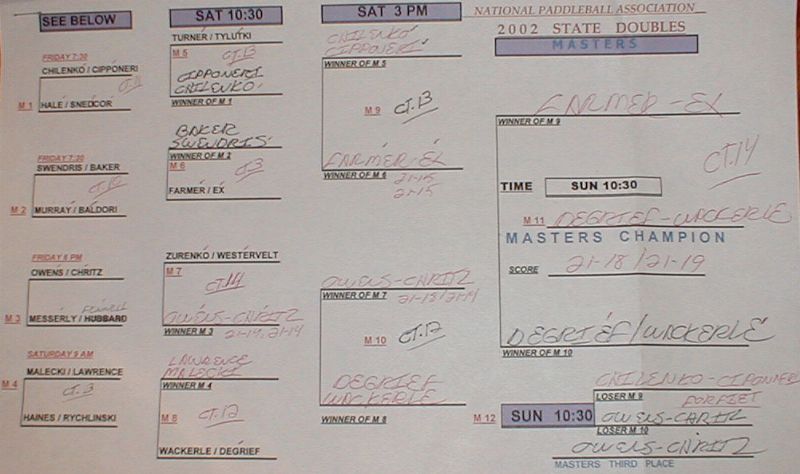 SEE BELOW
FRIDAY 7:30
CHILENKO / CIPPONERI
CT.11
M 1
HALE / SNEDCOR
FRIDAY 7:30
SWENDRIS / BAKER
CT.10
M 2
MURRAY / BALDORI
FRIDAY 6 PM
OWENS / CHRITZ
M 3
MESSERLY / HUBBARD
SATURDAY 9 AM
MALECKI / LAWRENCE
M 4
CT.3
HAINES / RYCHLINSKI
SAT 10:30
TURNER / TYLUTKI
M 5
CT.13
CIPPONERI
CHILENKO
WINNER OF M 1
BAKER
SWENDRIS
WINNER OF M 2
M 6
CT.3
FARMER / EX
ZURENKO / WESTERVELT
M 7
CT.14
OWENS-CHRITZ
WINNER M 3
21-14, 21-14
LAWRENCE
MALECKI
WINNER M 4
M 8
CT.12
WACKERLE / DEGRIEF
SAT 3 PM
CHILENKO
CIPPONERI
WINNER OF M 5
M 9
CT.13
FARMER-EX
WINNER OF M 6
21-15
21-15
OWENS-CHRITZ
WINNER OF M 7
21-15/21-14
M 10
CT.12
DEGRIEF
WACKERLE
WINNER OF M 8
NATIONAL PADDLEBALL ASSOCIATION
2002 STATE DOUBLES
MASTERS
FARMER-EX
WINNER OF M 9
CT.14
TIME
SUN 10:30
M 11
DEGRIEF-WACKERLE
MASTERS CHAMPION
SCORE
21-18/21-19
DEGRIEF/WACKERLE
WINNER OF M 10
CHILENKO-CIPONNERI
LOSER M 9
FORFIET
M 12
SUN 10:30
OWENS-CHRITZ
LOSER M 10
OWENS-CHRITZ
MASTERS THIRD PLACE